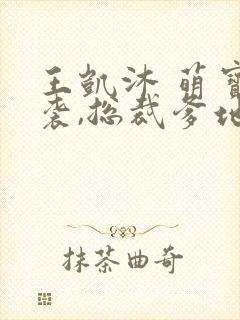 王凯沐 萌宝
袭,总裁爹地
抹茶曲奇